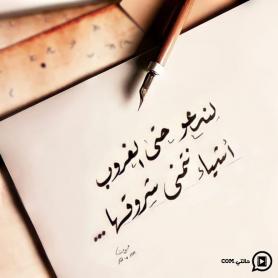 لندعو حتى الغروب
أشياء نتمنى شروقها...
حالتي.COM